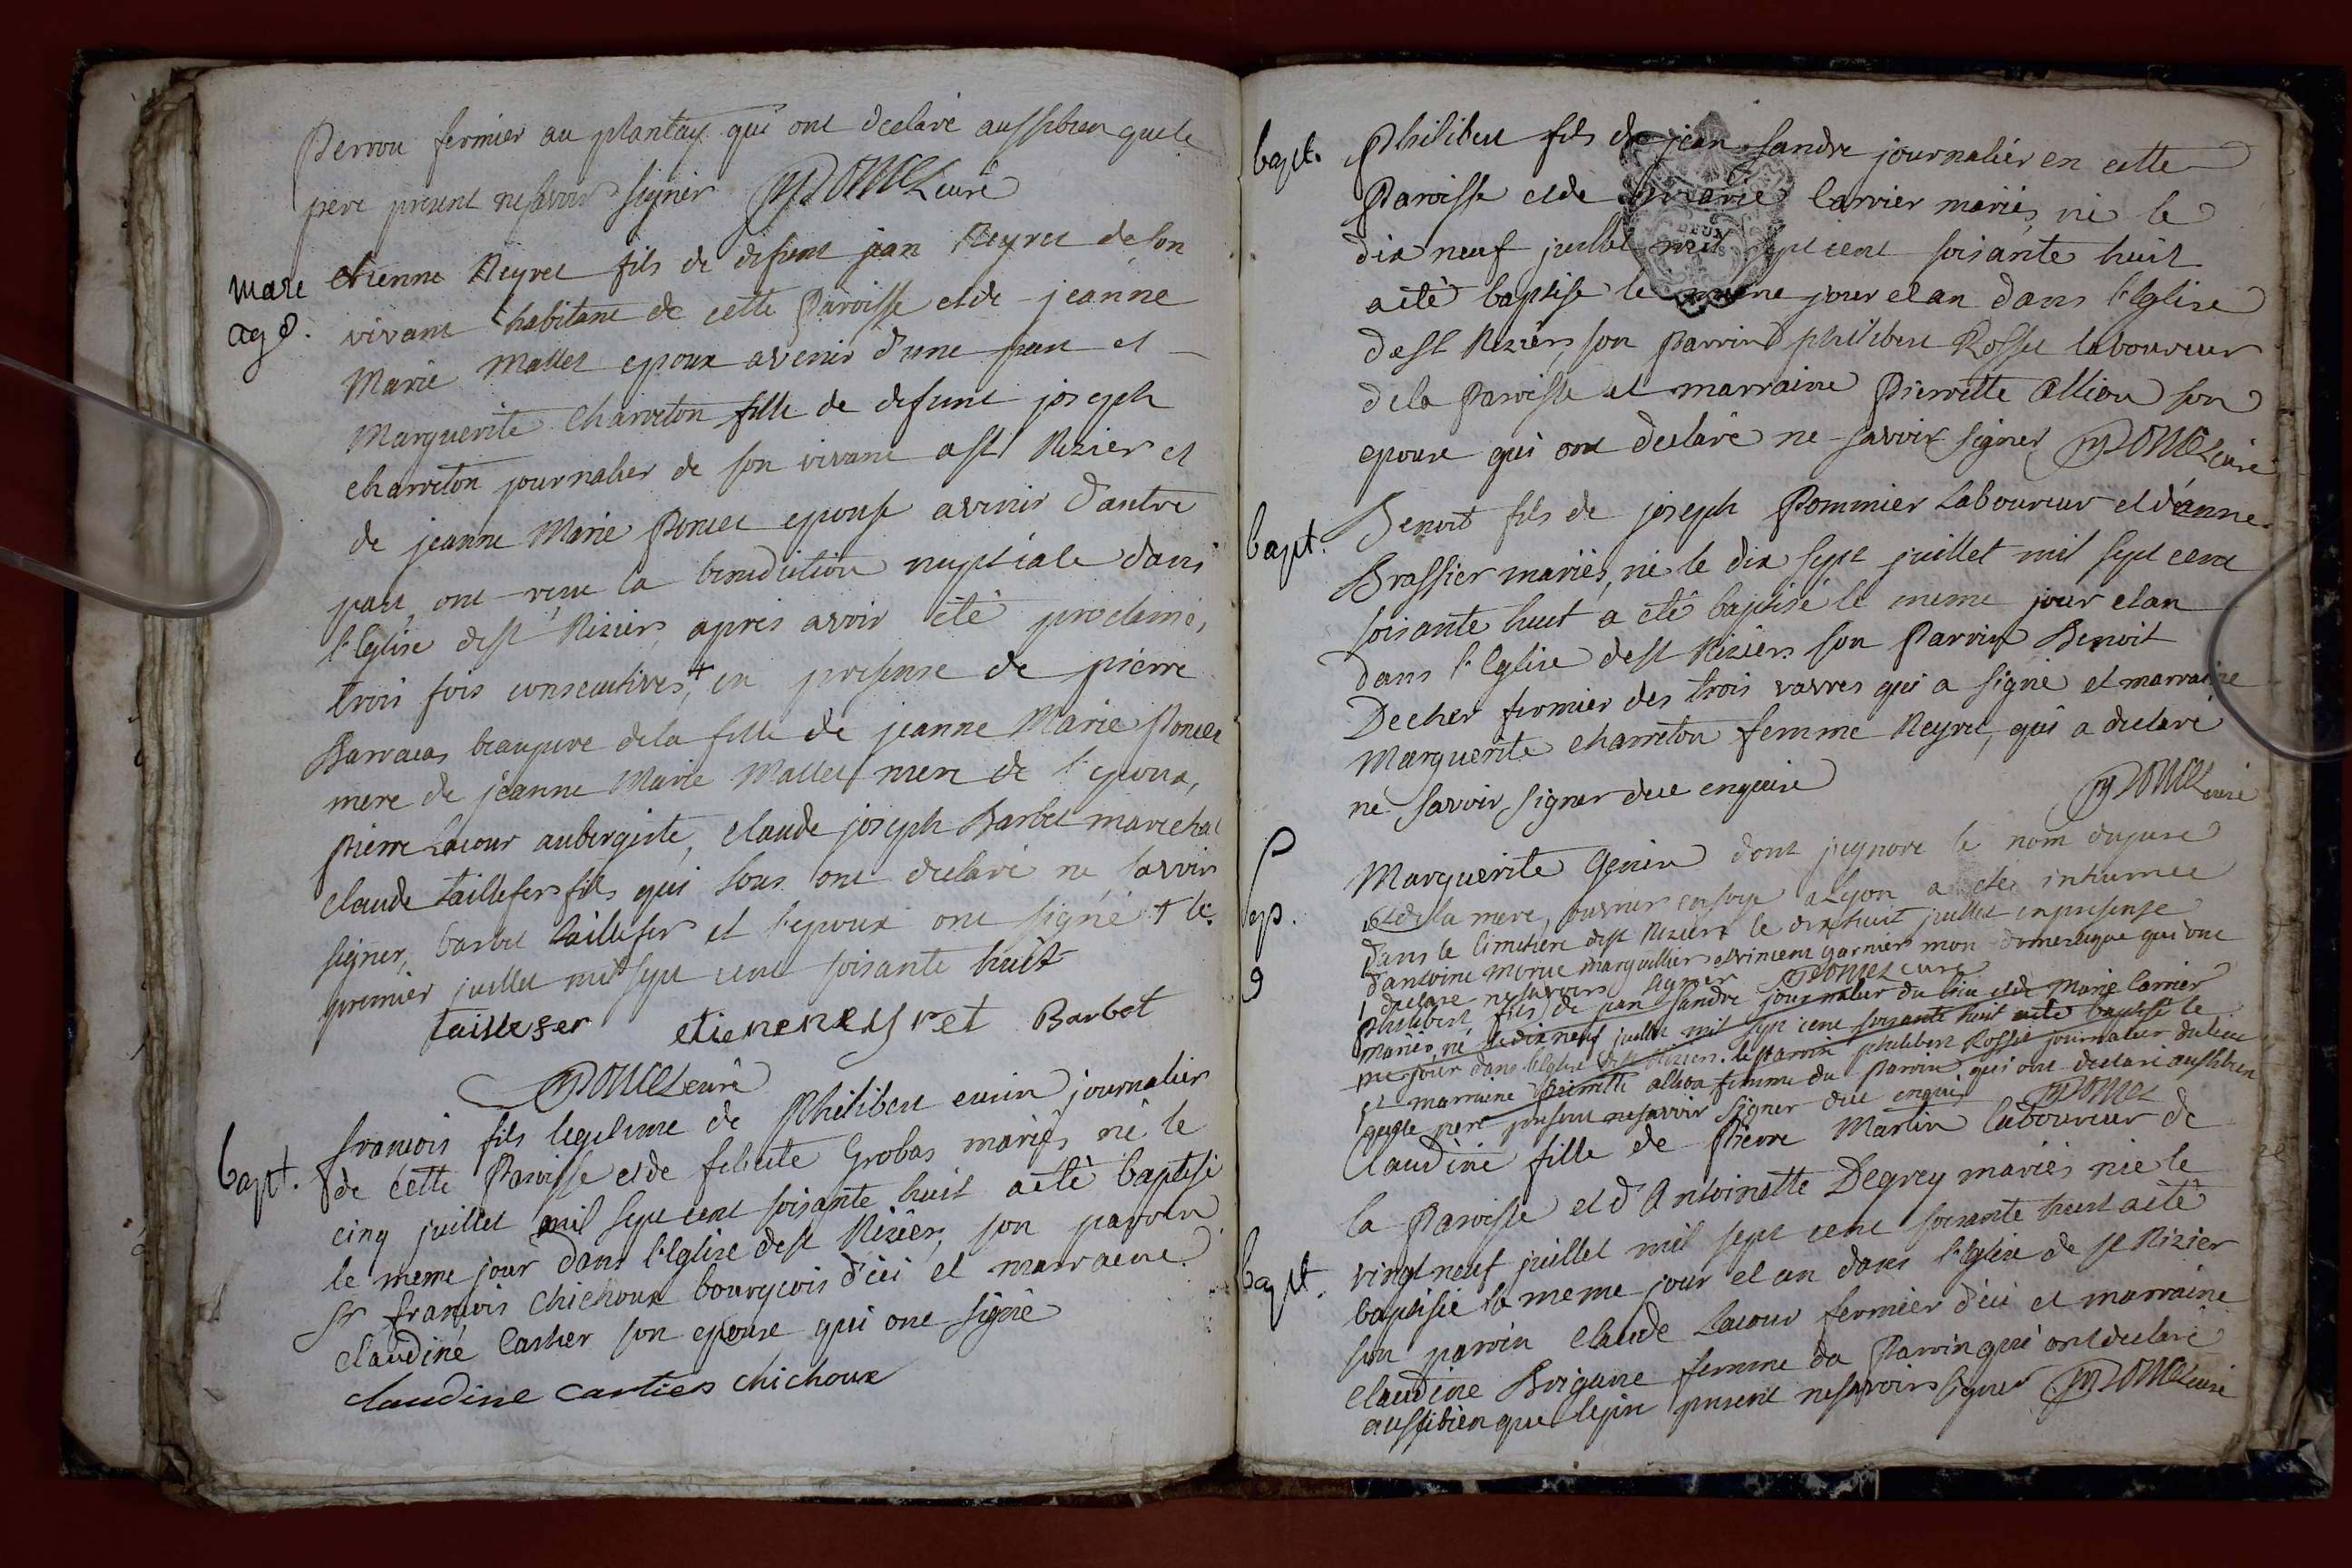 Perron fermier au plantay qui ont declaré aussibien quele
pere present nesavoir signer Poncet curé
mari
age.
etienne Reyret fils de defunt jean Reyret deson
vivant habitant de cette Paroisse etde jeanne
Marie Mallet epoux avenir d'une part et
Marguerite Charreton fille de defunt joseph
charreton journalier de son vivant a st Rizier et
de jeanne Marie Poncet epouse avenir d'autre
part, ont reçu la benediction nuptiale dans
l'Eglise de st Rizier, apres avoir été proclamés
trois fois consecutives + en presense de pierre
Barracas beaupere dela fille de jeanne Marie Poncet
mere de jeanne Marie Mallet mere de l'epoux,
pierre Lacour aubergiste, claude joseph Barbet marechal
claude taillefer fils qui tous ont declaré ne savoir
signer, barbet taillefer et l'epoux ont signé + le
premier juillet mil sept cent soisante huit
taillefer etiene neyret Barbet
Poncet curé
bapt.
francois fils legitime de Philibert journalier
de cette Paroisse et de felicité Grobas mariés né le
cinq juillet mil sept cent soisante huit a été baptisé
le meme jour dans l'Eglise de st Rizier, son parrin
Sr françois Chichoux bourgeois d'ici et marraine
Claudine Cartier son epouse qui ont signé
claudine cartier chichoux
bapt.
Philibert fils de jean Sandre journalier en cette
Paroisse et de marie Carrier mariés, né le
dix neuf juillet mil sept cent soisante huit
a été baptisé le meme jour et an dans l'Eglise
de st Rizier, son Parrin philibert Rosset laboureur
dela Paroisse et marraine Pierrette Allion son
epouse qui ont declaré ne savoir signer Poncet curé
bapt.
Benoit fils de joseph Pommier Laboureur et d'anne
Brassier mariés, né le dix sept juillet mil sept cent
soisante huit a été baptisé le meme jour et an
dans l'Eglise de st Rizier son Parrin Benoit
Decher fermier des trois vavres qui a signé et marraine
Marguerite charreton femme Reyret, qui a declaré
ne savoir signer due enquise
Poncet curé
Sep.
Marguerite Genin dont j'ignore le nom du pere
et de la mere, ouvrier en soye a Lyon a été inhumée
dans le cimetiere de st Rizier le dixhuit juillet en presense
d'antoine marguillier et vincent garnier mon domestique qui ont
declaré nesavoir signer Poncet curé
philibert fils de jean Sandre journalier du lieu et de Marie Carrier
mariés, né le dix neuf juillet mil sept cent soisante huit a été baptisé le
me jour dans l'Eglise de st Rizier. le Parrin philibert Rosset journalier du lieu
et marraine Pierrette allion femme du Parrin qui ont declaré aussibien
quele pere present nesavoir signer due enquis Poncet
bapt.
Claudine fille de Pierre Martin laboureur de
la Paroisse et d'Antoinette Degrey mariés née le
vingt neuf juillet mil sept cent soisante huit a été
baptisée le meme jour et an dans l'Eglise de st Rizier
son parrin Claude Lacour fermier d'ici et marraine
Claudine femme du Parrin qui ont declaré
aussibien que le pere present nesavoir signer Poncet curé